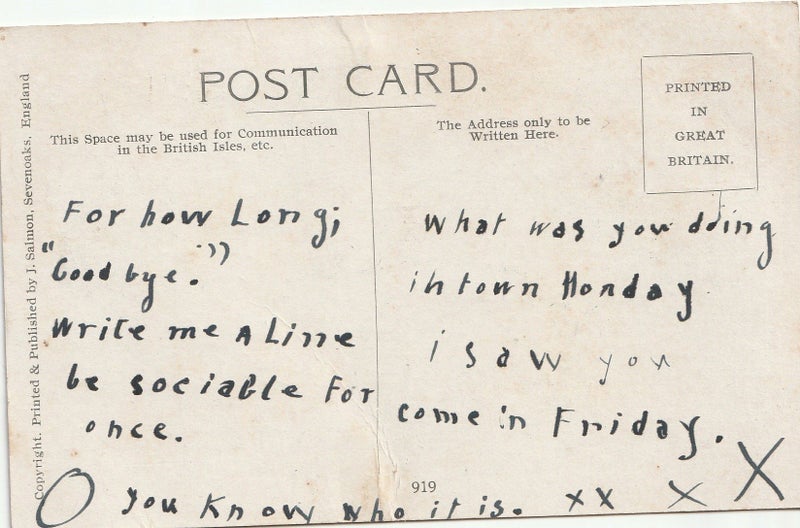 POST CARD.
This Space may be used for Communication
in the British Isles, etc.
The Address only to be
Written Here.
PRINTED
IN
GREAT
BRITAIN.
Copyright. Printed & Published by J. Salmon, Sevenoaks, England
For how Long;
"Good bye."
Write me a Line
be sociable For
once.
What was you dding
in town Monday
i saw you
come in Friday.
919
O you Know who it is. xx x X